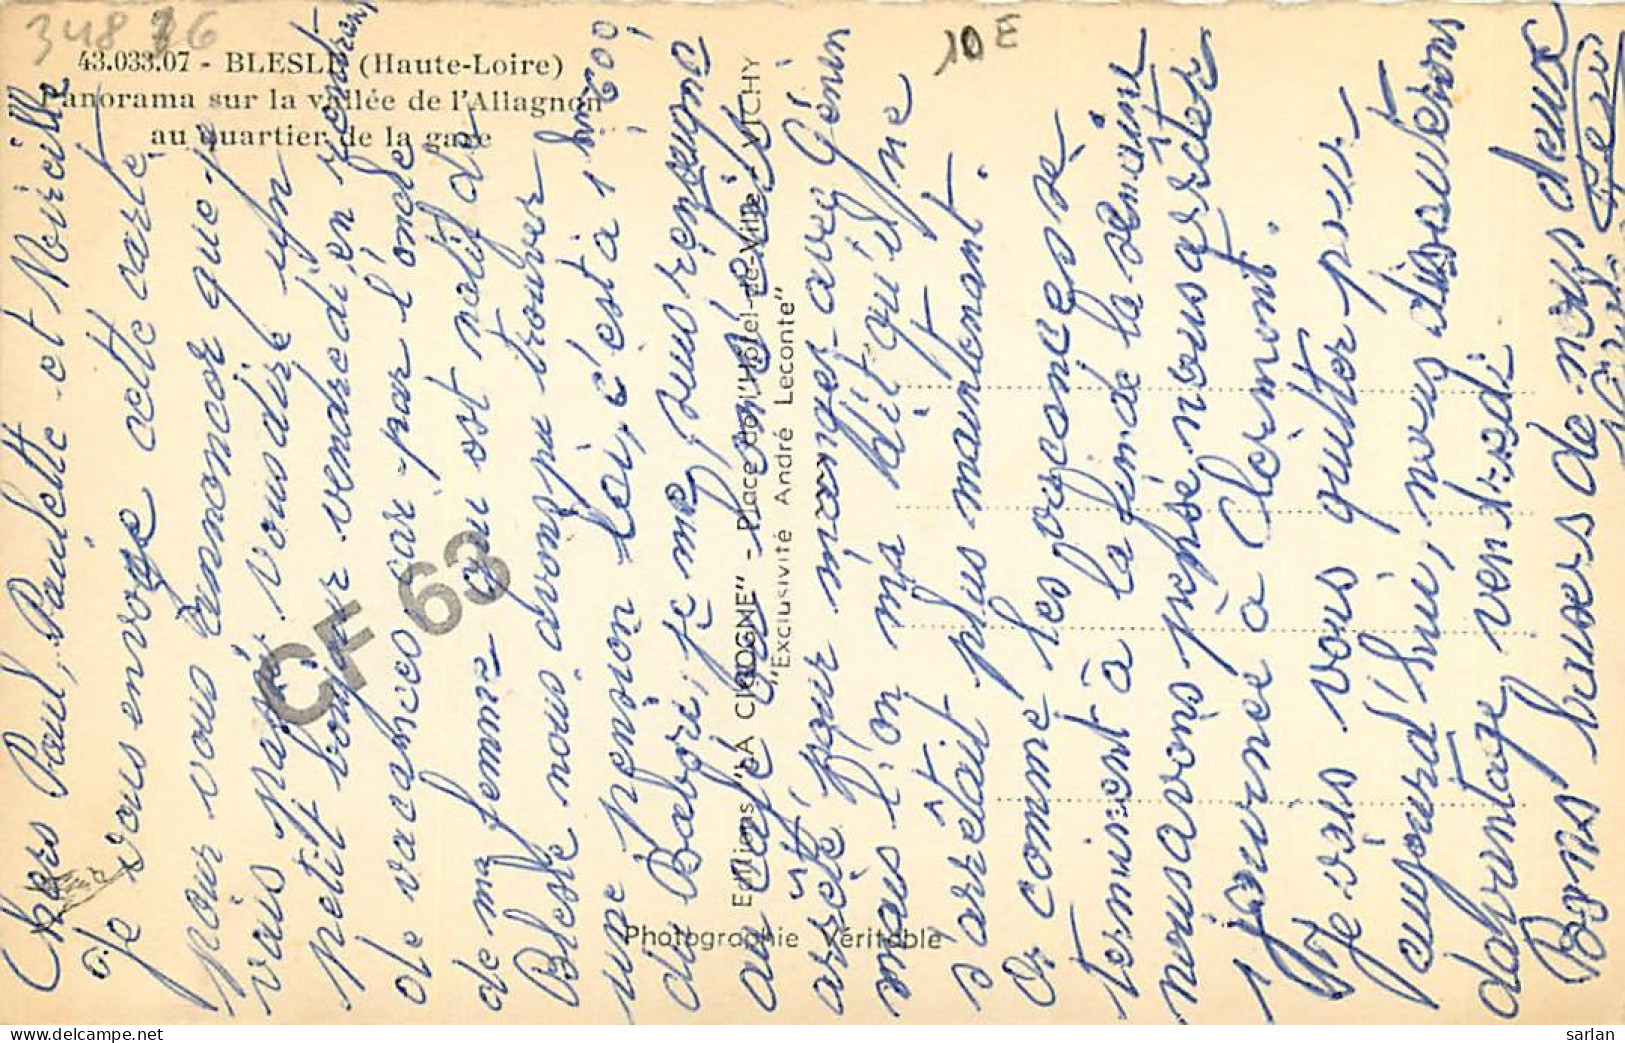 34876
10E
43.033.07 - BLESLE (Haute-Loire)
Panorama sur la vallée de l'Allagnon
au quartier de la gare
CF 63
Photographie Véritable
Editions "LA CIGOGNE" - Place de l'Hôtel-de-Ville - VICHY
"Exclusivité André Leconte"
Chers Paul, Paulette et Mireille
Je vous envoye cette carte
pour vous annoncer que je
vais passé vous dire un
petit bonjour vendredi en rentrant
de vacances car par l'onde
de ma femme qui est natif de
Blesle nous avons pu trouver
une pension ici, c'est à 1 km 600
du Babory, je me suis renseigné
au café
arrêté pour manger avec Génin
mais l'on m'a dit qu'il ne
s'arrêtait plus maintenant.
Or comme les vacances se
terminent à la fin de la semaine
nous avons pensé nous arrêter
1 journée à Clermont.
Je vais vous quitter pour
aujourd'hui, nous discuterons
davantage vendredi
Bons baisers de nous deux
sarlan